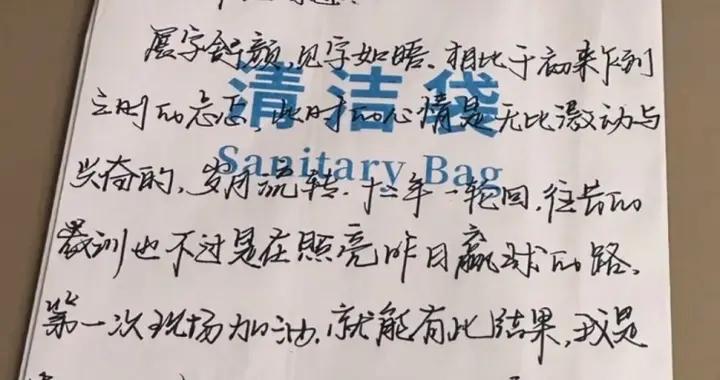 展字舒颜,见字如晤。相比于初来乍到
之时的忐忑,此时的心情是无比激动与
清洁袋
Sanitary Bag
兴奋的,岁月流转,十二年一轮回,往昔的
教训也不过是在照亮昨日赢球的路。
第一次现场加油,就能有此结果,我是